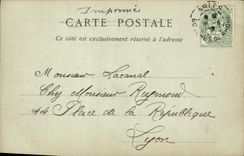 Imprimé
CARTE POSTALE
Ce côté est exclusivement réservé à l'adresse
Monsieur Lacanal
Chez Monsieur Reymond
44 Place de la République
Lyon